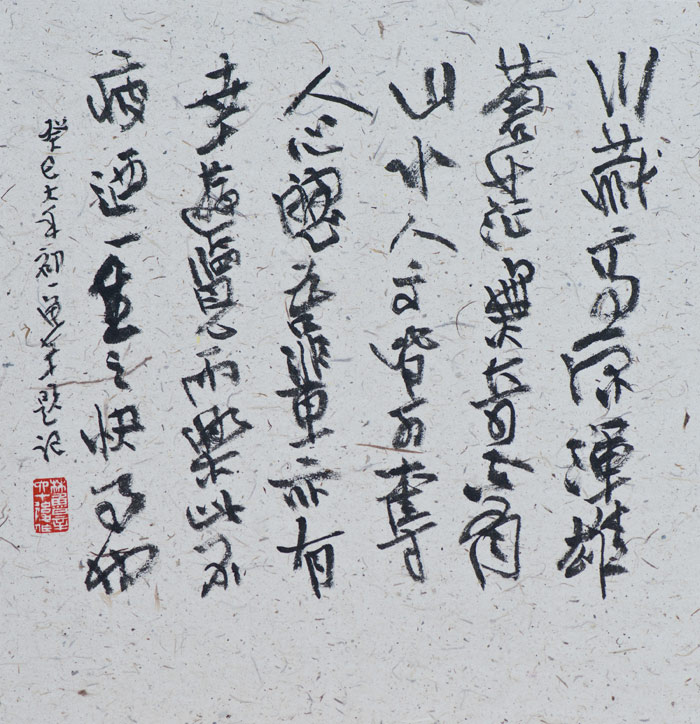 川藏高原渾雄
蒼茫奇
山水人文皆可奪
人心魄吾輩亦有
幸遊覽而樂此不
疲迺一生之快事也
癸巳初一題記